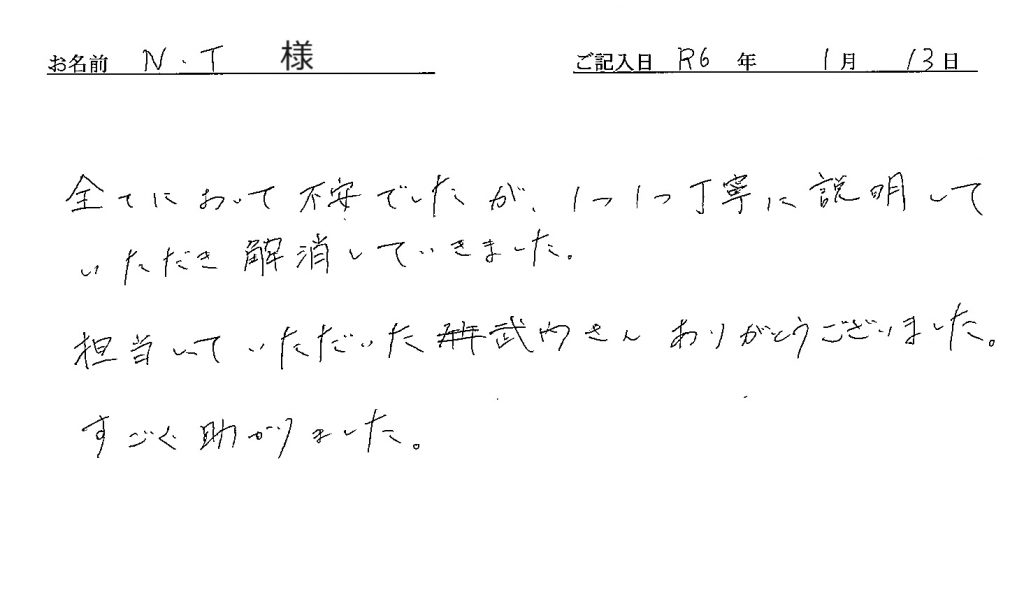 お名前 N.T 様 ご記入日 R6 年 1月 13日
全てにおいて不安でしたが、1つ1つ丁寧に説明して
いただき解消していきました。
担当していただいた武内さんありがとうございました。
すごく助かりました。